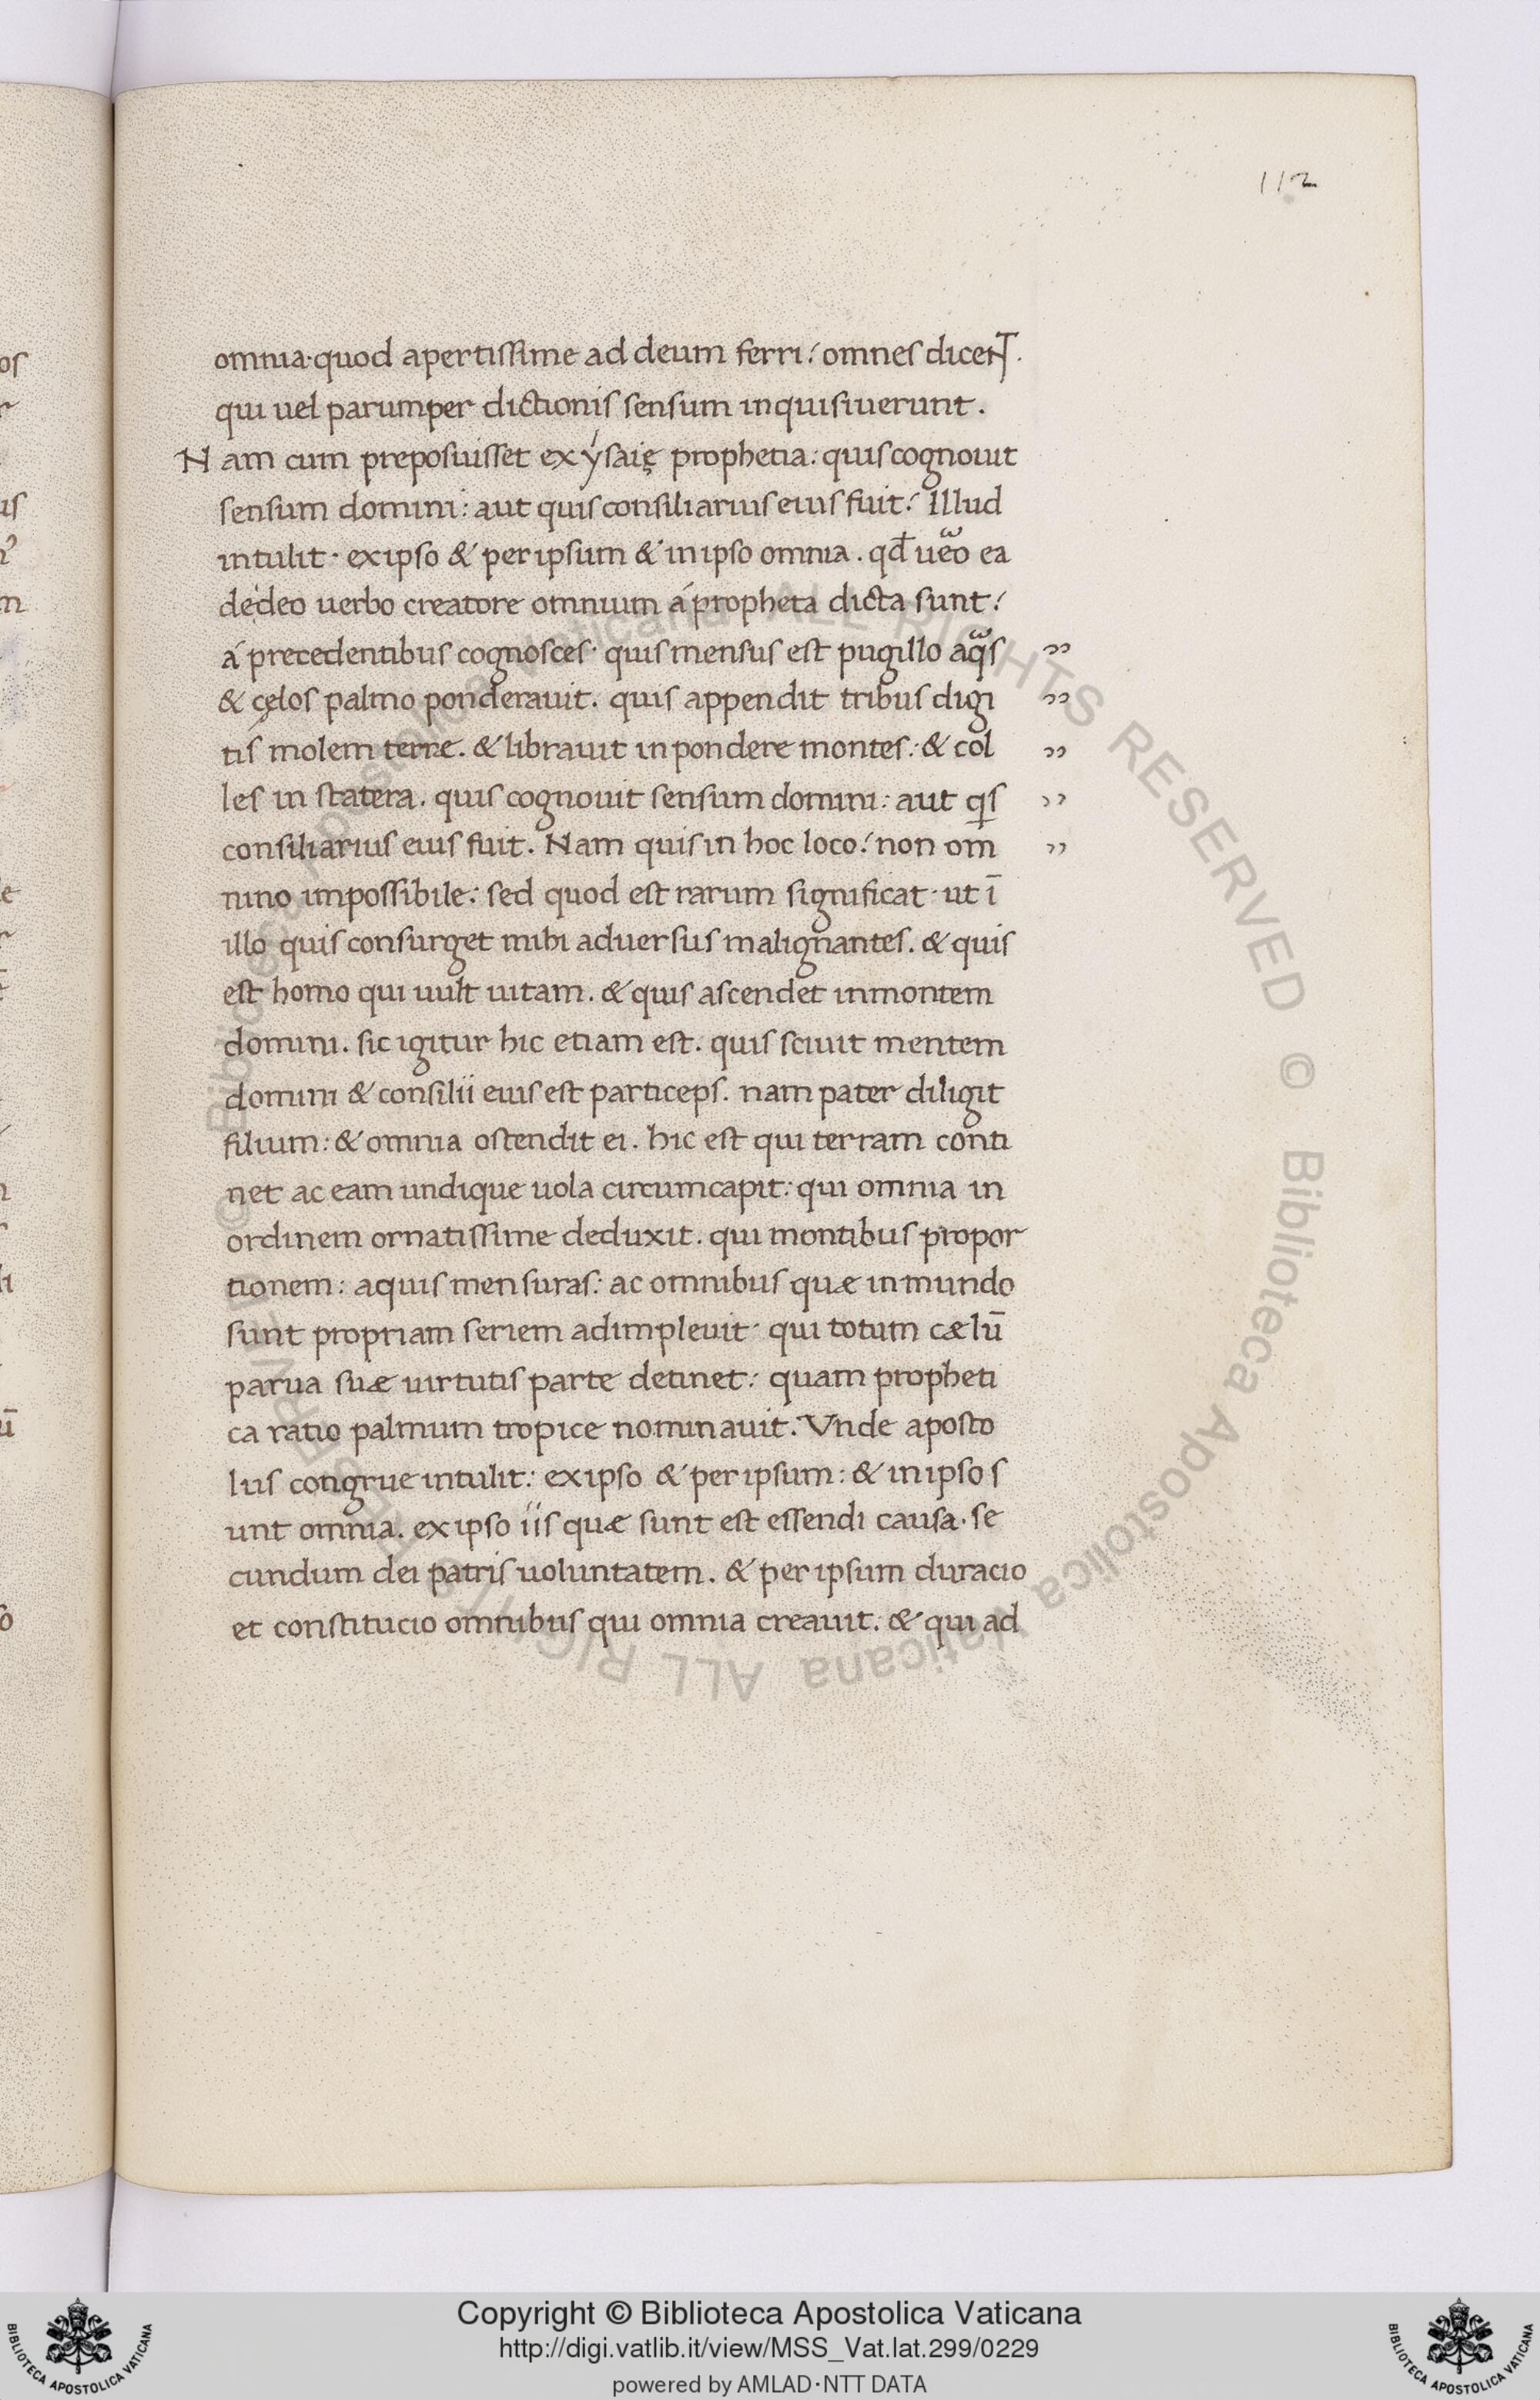 112
omnia·quod apertissime ad deum ferri! omnes dicent̄.
qui uel parumper dictionis sensum inquisiuerunt.
Nam cum preposuisset ex ysaię prophetia: quis cognouit
sensum domini: aut quis consiliarius eius fuit! Illud
intulit· ex ipso & per ipsum & in ipso omnia. qd̄ ueͣo ea
de deo uerbo creatore omnium á propheta dicta sunt!
á precedentibus cognosces· quis mensus est pugillo aqͣs ”
& cęlos palmo ponderauit. quis appendit tribus digi ”
tis molem terræ. & librauit in pondere montes: & col ”
les in statera. quis cognouit sensum domini: aut qs ”
consiliarius eius fuit. Nam quis in hoc loco! non om ”
nino impossibile: sed quod est rarum significat· ut ī
illo quis consurget mihi aduersus malignantes. & quis
est homo qui uult uitam. & quis ascendet in montem
domini. sic igitur hic etiam est. quis sciuit mentem
domini & consilii eius est particeps. nam pater diligit
filium: & omnia ostendit ei. hic est qui terram conti
net ac eam undique uola circumcapit: qui omnia in
ordinem ornatissime deduxit. qui montibus propor
tionem: aquis mensuras: ac omnibus quæ in mundo
sunt propriam seriem adimpleuit· qui totum cælū
parua suæ uirtutis parte detinet: quam propheti
ca ratio palmum tropice nominauit. Vnde aposto
lus congrue intulit: ex ipso & per ipsum: & in ipso s
unt omnia. ex ipso iis quæ sunt est essendi causa· se
cundum dei patris uoluntatem. & per ipsum duracio
et constitucio omnibus qui omnia creauit. & qui ad
© Biblioteca Apostolica Vaticana ALL RIGHTS RESERVED © Biblioteca Apostolica Vaticana ALL RIGHTS RESERVED
Copyright © Biblioteca Apostolica Vaticana
http://digi.vatlib.it/view/MSS_Vat.lat.299/0229
powered by AMLAD·NTT DATA
BIBLIOTECA APOSTOLICA VATICANA
BIBLIOTECA APOSTOLICA VATICANA